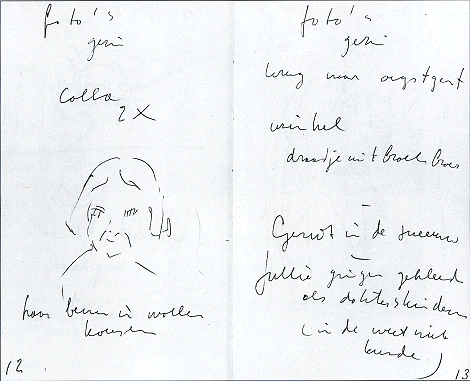 foto's
gezin
Colla
2 X
haar benen in wollen
kousen
12
foto's
gezin
terug naar
winkel
draadje uit broek broer
Genot in de sneeuw
Jullie gingen gekleed
als dokterskinderen
(in de west
kunde)
13